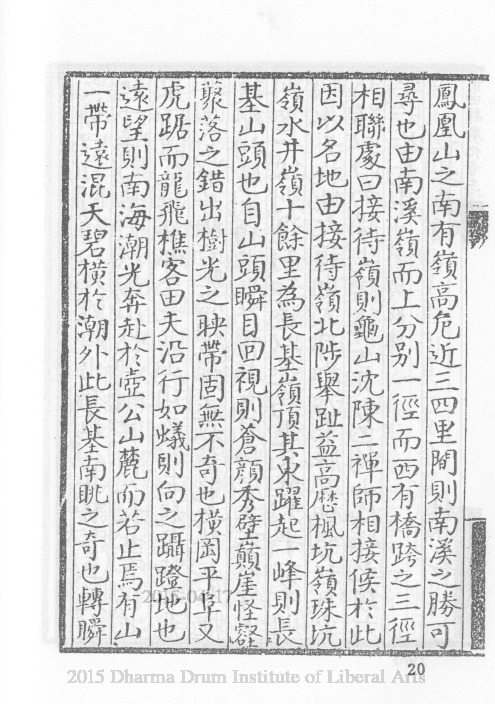 鳳凰山之南有嶺高危近三四里間則南溪之勝可
尋也由南溪嶺而上分别一徑而西有橋跨之三徑
相聯處曰接待嶺則龜山沈陳二禪師相接候於此
因以名地由接待嶺北陟舉趾益高歷楓坑嶺珠坑
嶺水井嶺十餘里為長基嶺頂其東躍起一峰則長
基山頭也自山頭瞬目回視則蒼顏秀壁巔崖怪壑
聚落之錯出樹光之映帶固無不奇也橫岡平阜又
虎踞而龍飛樵客田夫沿行如蟻則向之躡蹬地也
遠望則南海潮光奔赴於壺公山麓而若止焉有山
一帶遠混天碧橫於潮外此長基南眺之奇也轉瞬
2015-04-17
20
2015 Dharma Drum Institute of Liberal Arts